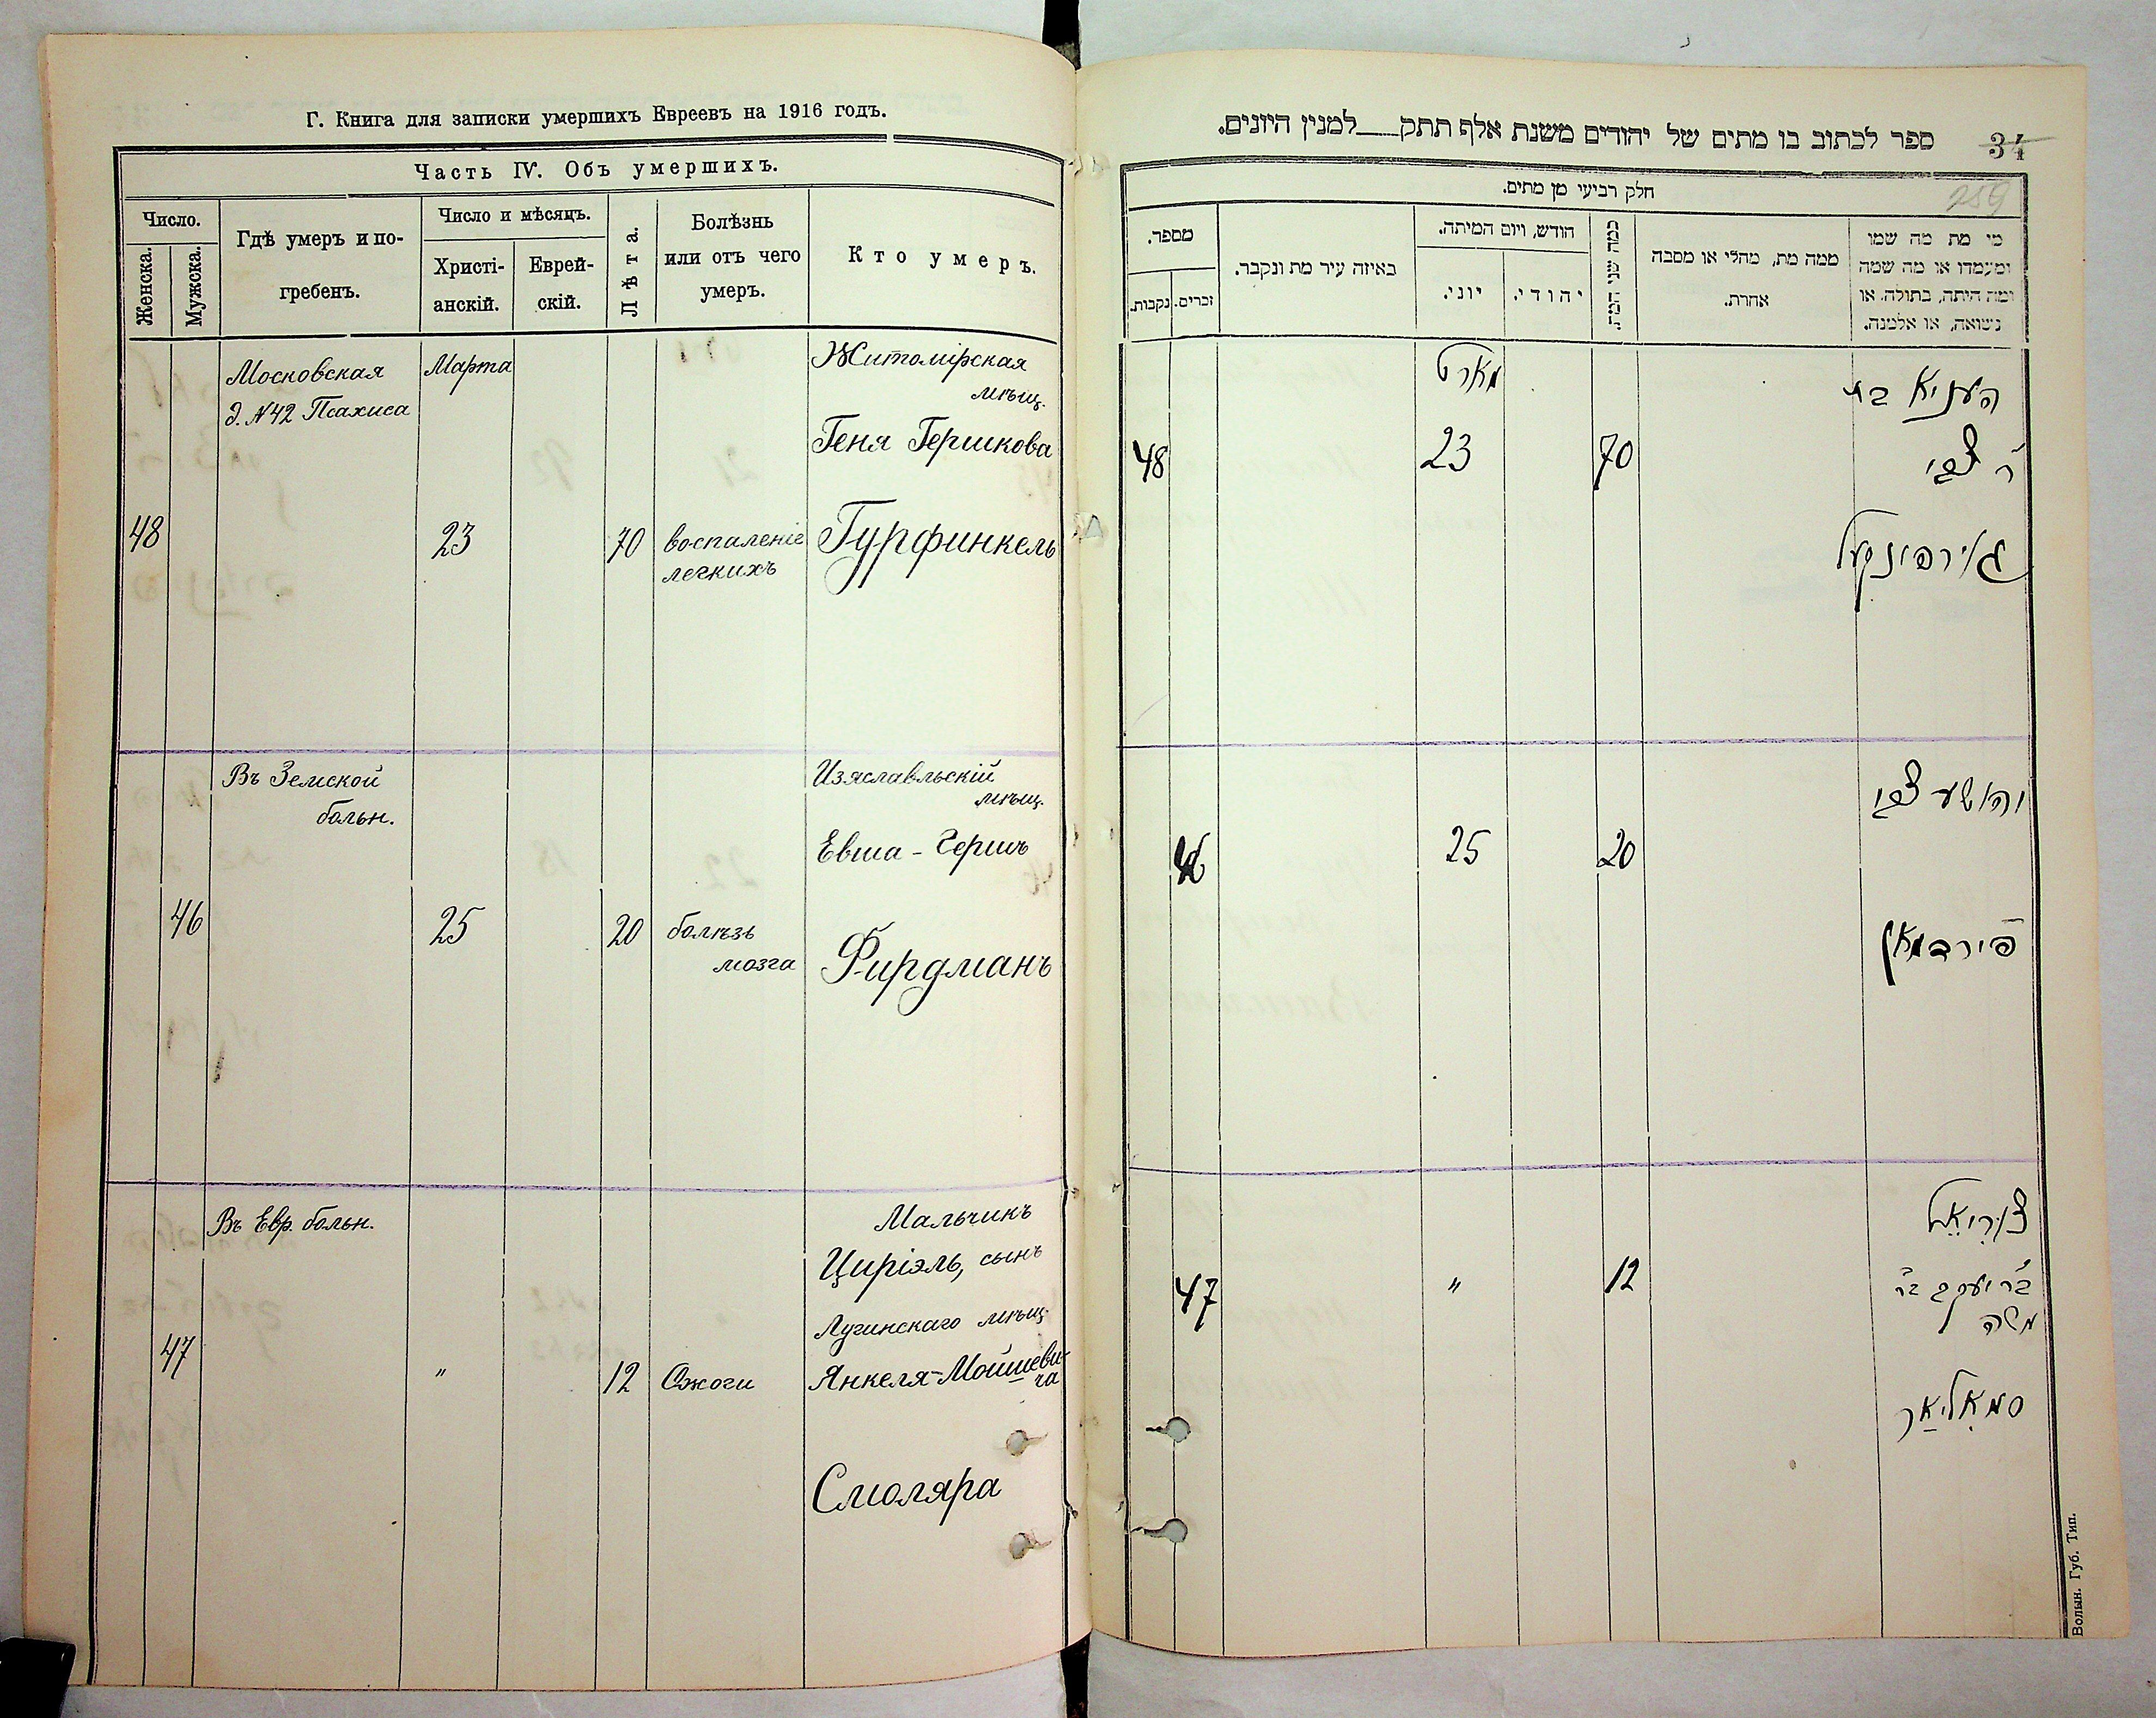 Г. Книга для записки умершихъ Евреевъ на 1916 годъ.
Часть IV. Объ умершихъ.
Число.
Женска.
Мужска.
Гдѣ умеръ и по-
гребенъ.
Число и мѣсяцъ.
Христі-
анскій.
Еврей-
скій.
Лѣта.
Болѣзнь
или отъ чего
умеръ.
Кто умеръ.
Московская
д. №42 Псахиса
Марта
Житомірская
мѣщ.
Геня Гершкова
48
23
70
воспаленіе
легкихъ
Гурфинкель
Въ Земской
больн.
Изяславльскій
мѣщ.
Евша - Гершъ
46
25
20
болѣзь
мозга
Фирдманъ
Въ Евр. больн.
Мальчикъ
Циріэль, сынъ
Лугинскаго мѣщ.
47
"
12
Ожоги
Янкеля-Мойшеви-
ча
Смоляра
ספר לכתוב בו מתים של יהודים משנת אלף תתק למנין היונים.
34
259
חלק רביעי מן מתים.
מספר.
נקבות.
זכרים.
באיזה עיר מת ונקבר.
חודש, ויום המיתה.
יוני.
יהודי.
כמה שני המת.
ממה מת, מחלי או מסבה
אחרת.
מי מת מה שמו
ומעמדו או מה שמה
ומה היתה, בתולה, או
נשואה, או אלמנה.
מארט
העניא בת
ר' צבי
48
23
70
גורפינקעל
יהושע צבי
46
25
20
פירדמאן
צוריאל
47
"
12
בר יעקב בר
משה
סמאליאר
Волын. Губ. Тип.